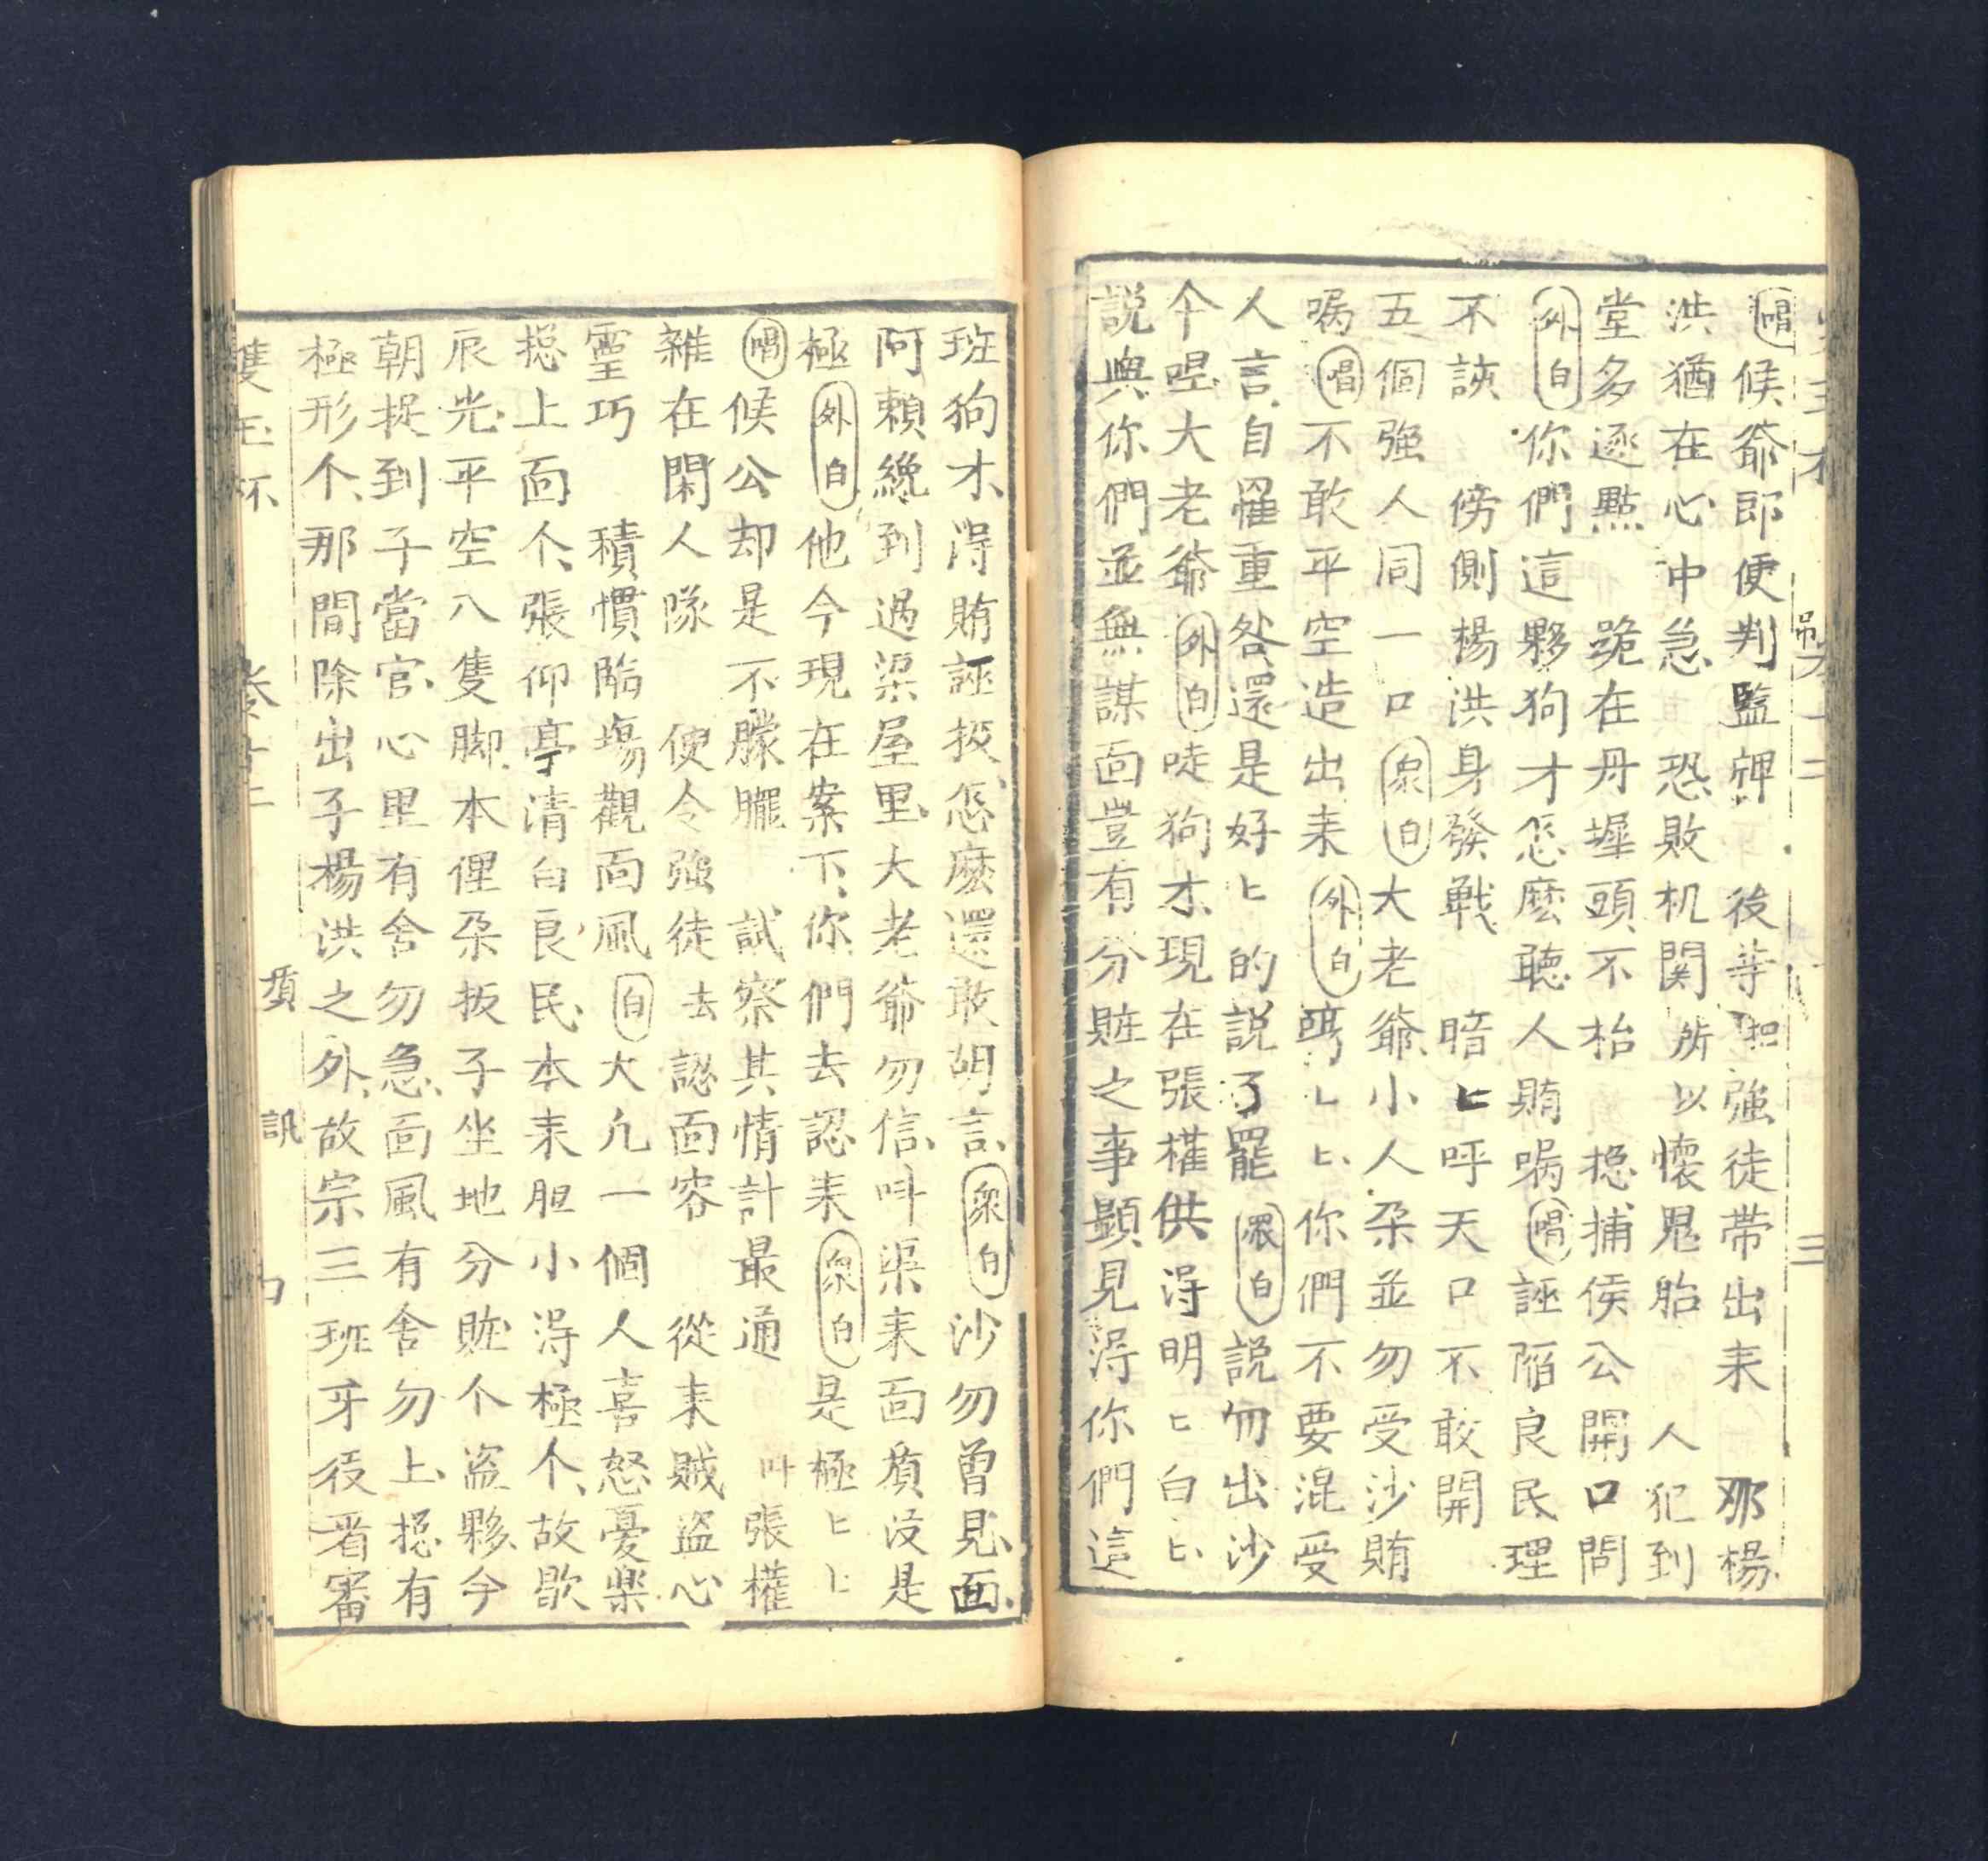 唱候爺即便判監牌 後等把強徒帶出耒 那楊
洪猶在心中急 恐敗机関所以懷鬼胎 人犯到
堂多逐點 跪在丹墀頭不枱 揔捕侯公開口問
外白你們這夥狗才怎麽聴人賄囑唱誣陷良民理
不該 傍側楊洪身發戰 暗匕呼天口不敢開
五個強人同一口衆白大老爺小人朶並勿受沙賄
囑唱不敢平空造出耒外白哼匕匕你們不要混受
人言自罹重咎還是好匕的説了罷衆白説勿出沙
个嘿大老爺外白唗狗才現在張權供得明匕白匕
説與你們並無謀面豈有分賍之事顯見得你們這
班狗才得賄誣扳怎麽還敢胡言衆白沙勿曾見面
阿賴纔到過渠屋里大老爺勿信呌渠耒面質没是
極外白他今現在案下你們去認耒衆白是極匕匕
唱候公却是不朦朧 試察其情計最通 呌張權
雜在閑人隊 使令強徒去認面容 從耒賊盗心
霊巧 積慣臨塲觀面風白大凡一個人喜怒憂樂
揔上面个張仰亭清白良民本耒胆小得極个故歇
辰光平空八隻脚本俚朶扳子坐地分賍个盗夥今
朝捉到子當官心里有舍勿急面風有舍勿上揔有
極形个那間除出子楊洪之外故宗三班牙役看審
隻玉杯 卷廿二 質 訊